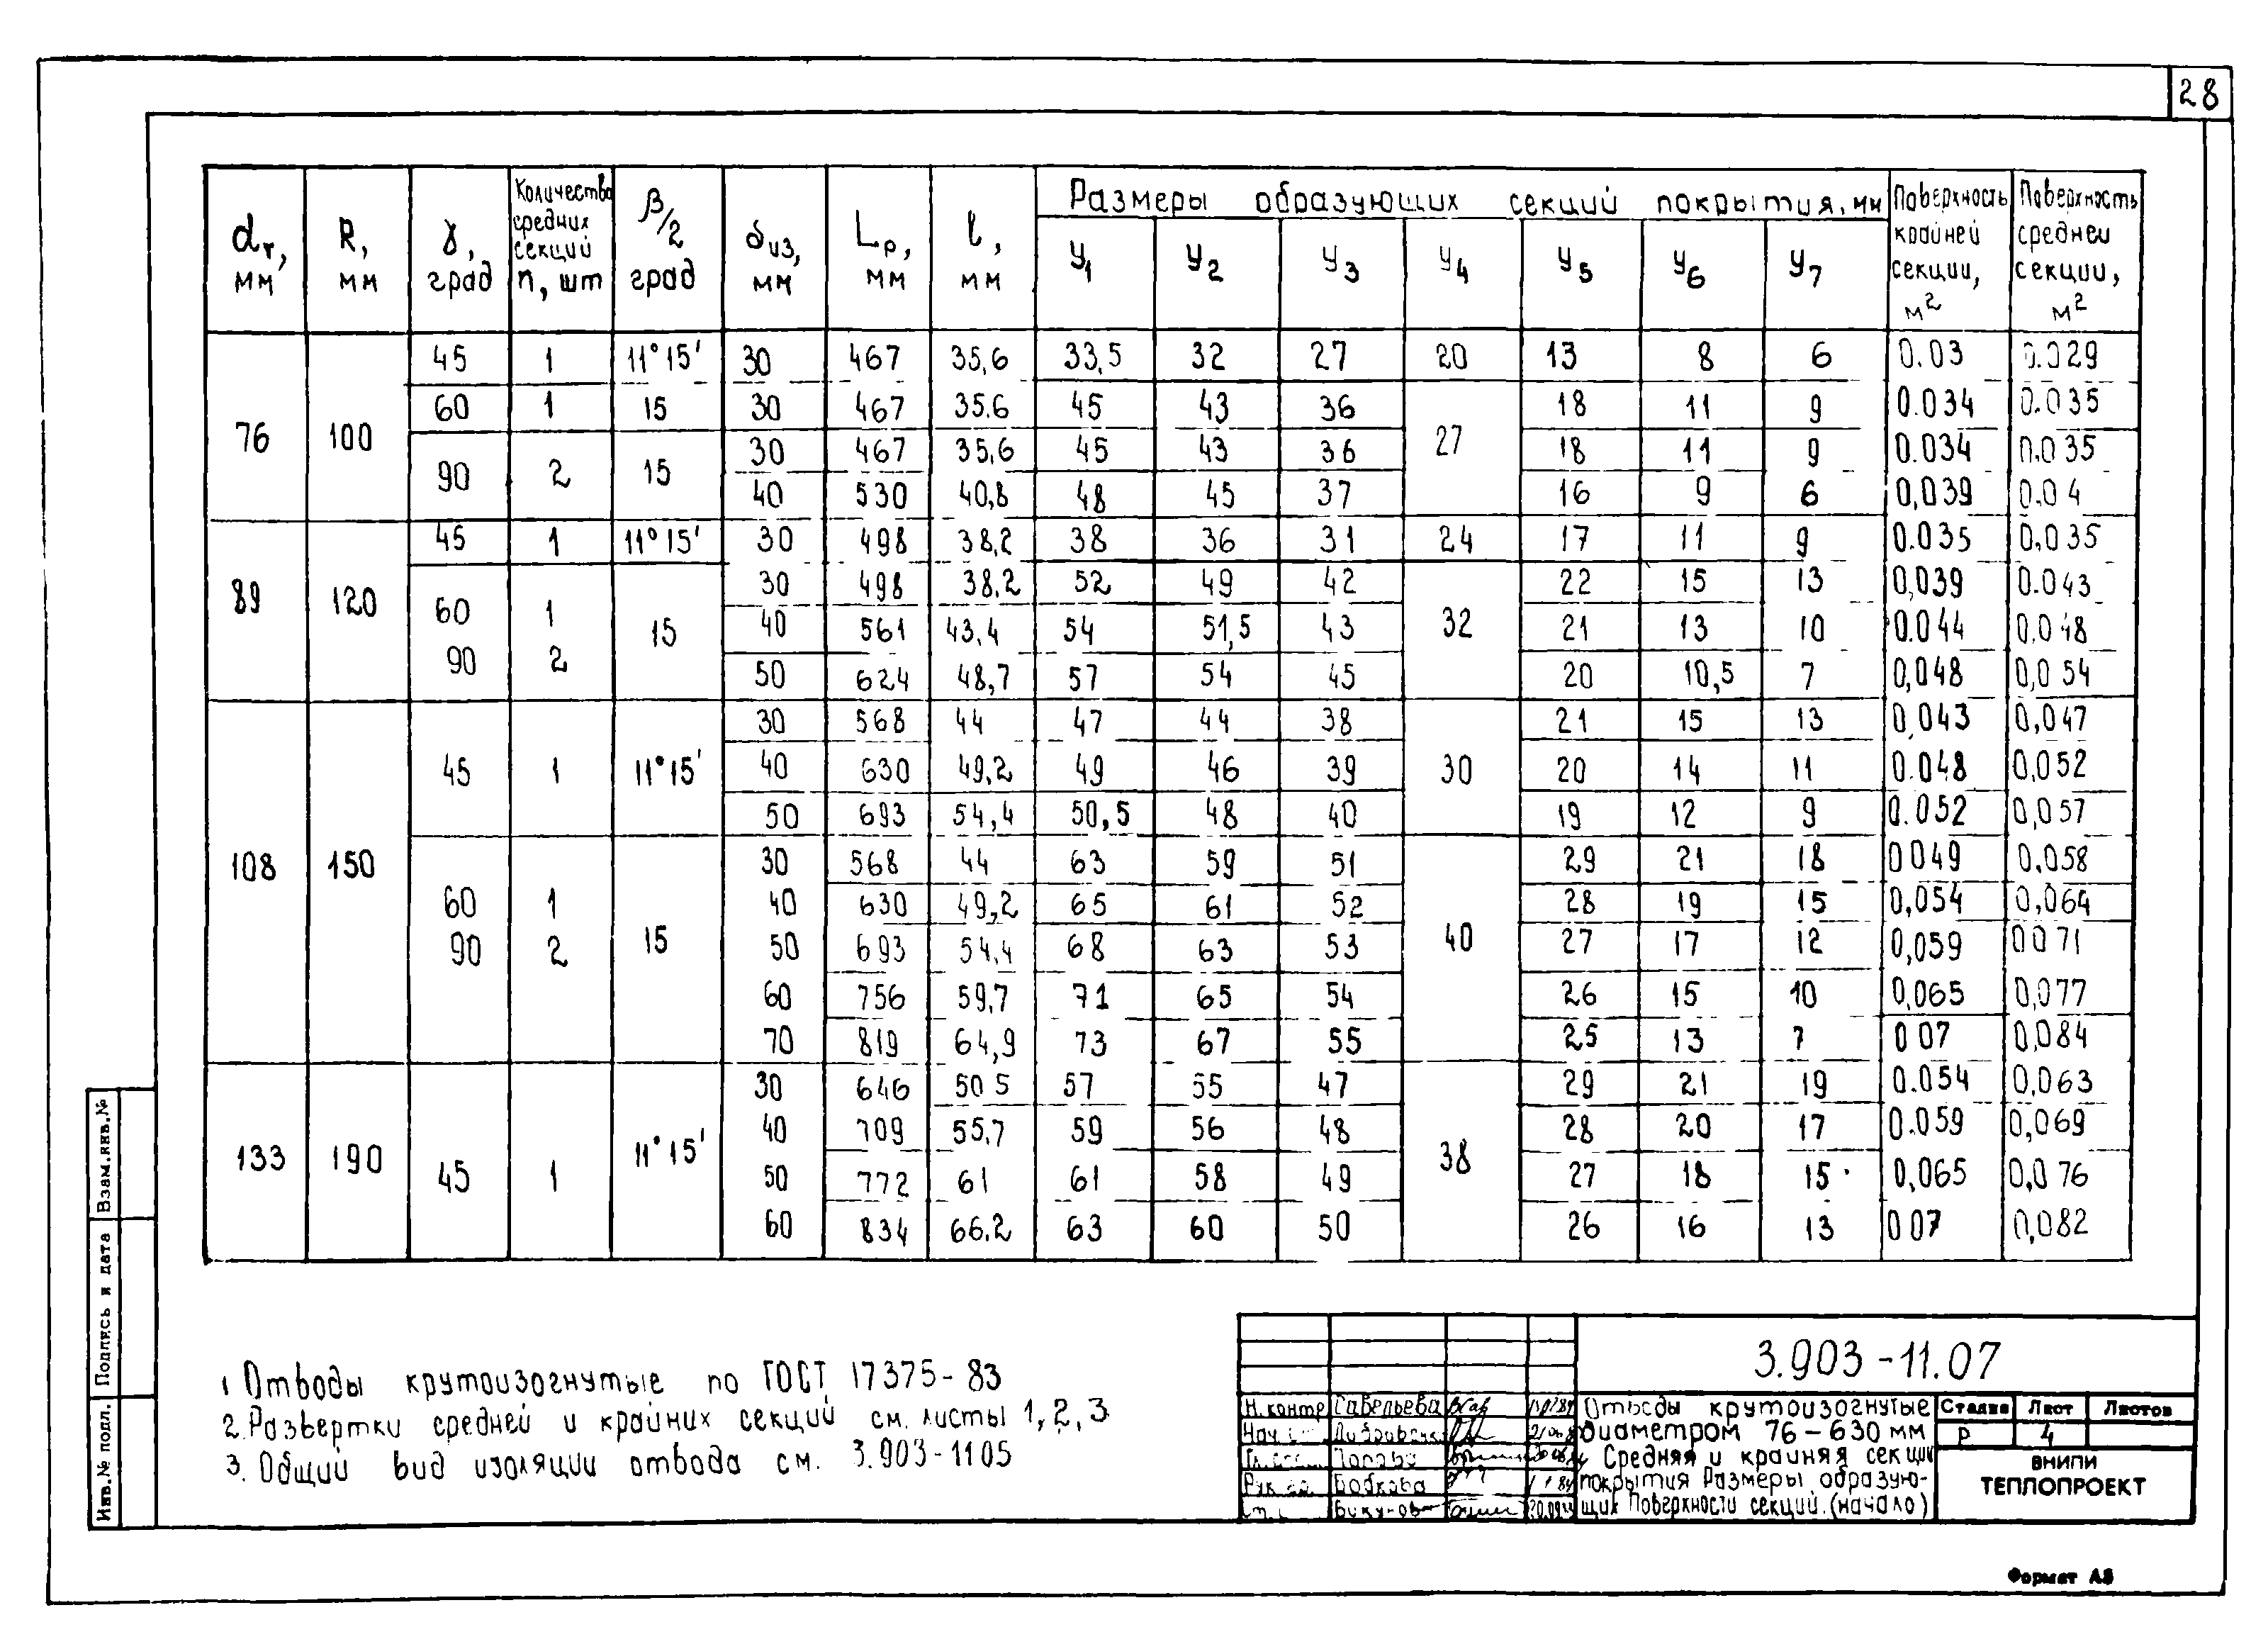 28
dт, мм | R, мм | γ, град | Количество средних секций n, шт | β/2 град | δиз, мм | Lр, мм | l, мм | Размеры образующих секций покрытия, мм | Поверхность крайней секции, м² | Поверхность средней секции, м²
У1 У2 У3 У4 У5 У6 У7
76 100 45 1 11°15' 30 467 35,6 33,5 32 27 20 13 8 6 0.03 0.029
60 1 15 30 467 35.6 45 43 36 27 18 11 9 0.034 0.035
90 2 15 30 467 35,6 45 43 36 18 11 9 0.034 0.035
40 530 40,8 48 45 37 16 9 6 0,039 0.04
89 120 45 1 11°15' 30 498 38,2 38 36 31 24 17 11 9 0.035 0,035
60 1 15 30 498 38,2 52 49 42 32 22 15 13 0,039 0.043
40 561 43,4 54 51,5 43 21 13 10 0.044 0,048
90 2 50 624 48,7 57 54 45 20 10,5 7 0,048 0,054
108 150 45 1 11°15' 30 568 44 47 44 38 30 21 15 13 0,043 0,047
40 630 49,2 49 46 39 20 14 11 0.048 0,052
50 693 54,4 50,5 48 40 19 12 9 0.052 0,057
60 1 15 30 568 44 63 59 51 40 29 21 18 0 049 0,058
40 630 49,2 65 61 52 28 19 15 0,054 0,064
90 2 50 693 54,4 68 63 53 27 17 12 0,059 0 071
60 756 59,7 71 65 54 26 15 10 0,065 0,077
70 819 64,9 73 67 55 25 13 7 0 07 0,084
133 190 45 1 11°15' 30 646 50 5 57 55 47 38 29 21 19 0.054 0,063
40 709 55,7 59 56 48 28 20 17 0.059 0,069
50 772 61 61 58 49 27 18 15 0,065 0,076
60 834 66.2 63 60 50 26 16 13 0 07 0,082
1 Отводы крутоизогнутые по ГОСТ 17375-83
2. Развертки средней и крайних секций см. листы 1, 2, 3
3. Общий вид изоляции отвода см. 3.903-11 05
Взам.инв.№
Подпись и дата
Инв.№ подл.
3.903-11.07
Н.контр Савельева
Отводы крутоизогнутые
диаметром 76-630 мм
Средняя и крайняя секции
покрытия Размеры образую-
щих Поверхности секций.(начало)
Стадия Лист Листов
Р 4
ВНИПИ
ТЕПЛОПРОЕКТ
Формат А3